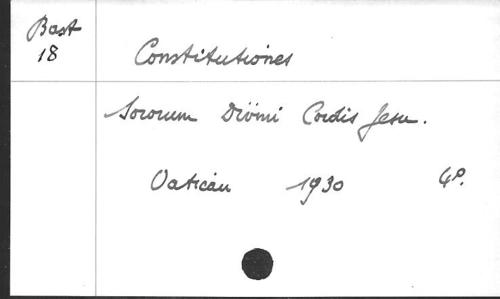 Bast
18
Constitutiones
Sororum Divini Cordis Jesu.
Vatican 1930 4°.